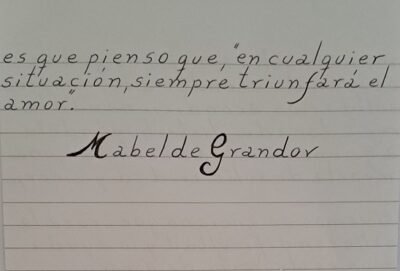 es que pienso que, "en cualquier
situación, siempre triunfará el
amor".
Mabel de Grandov